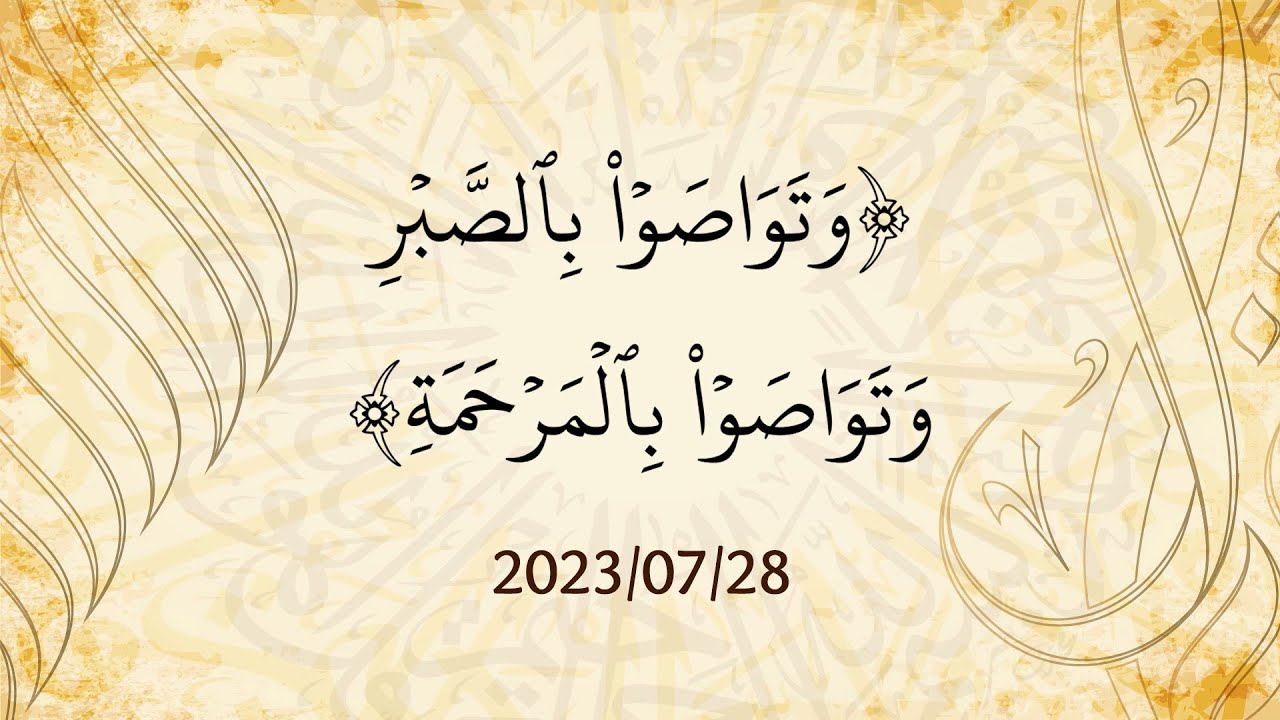 ﴿وَتَوَاصَوۡاْ بِٱلصَّبۡرِ
وَتَوَاصَوۡاْ بِٱلۡمَرۡحَمَةِ﴾
2023/07/28